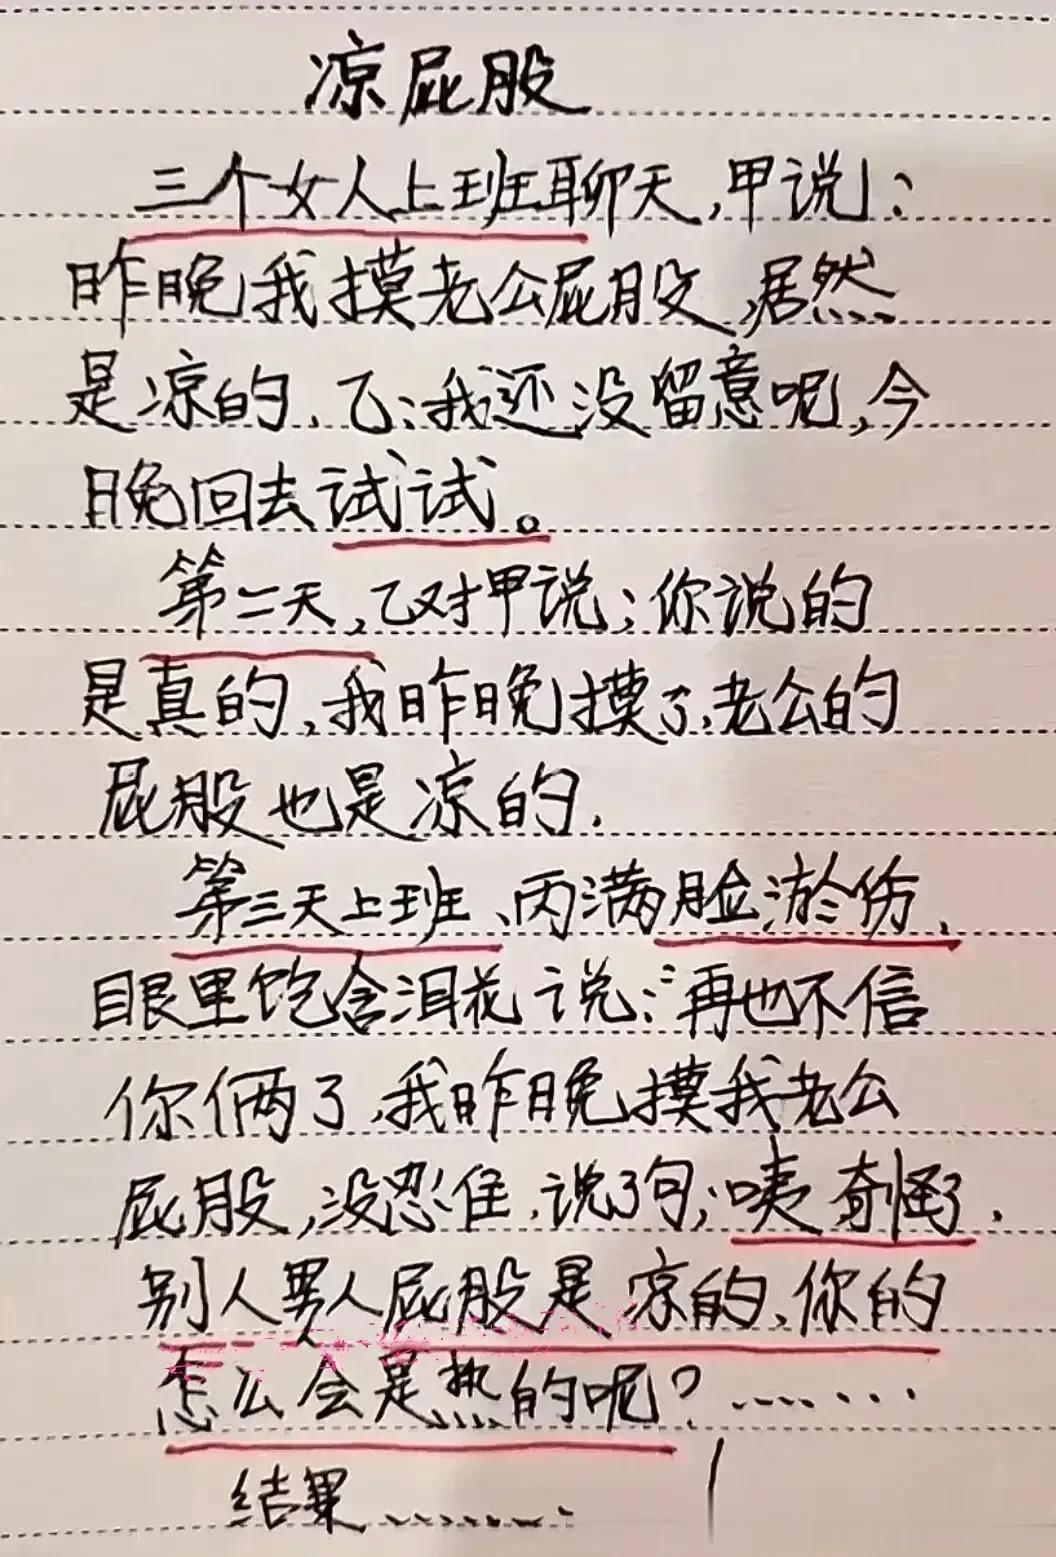 凉屁股
三个女人上班聊天,甲说:
昨晚我摸老公屁股,居然
是凉的,乙:我还没留意呢,今
晚回去试试。
第二天,乙对甲说;你说的
是真的,我昨晚摸了,老公的
屁股也是凉的.
第三天上班、丙满脸淤伤,
眼里饱含泪花说:"再也不信
你俩了,我昨晚摸我老公
屁股,没忍住,说了句;咦奇怪了,
别人男人屁股是凉的、你的
怎么会是热的呢?……
结果………